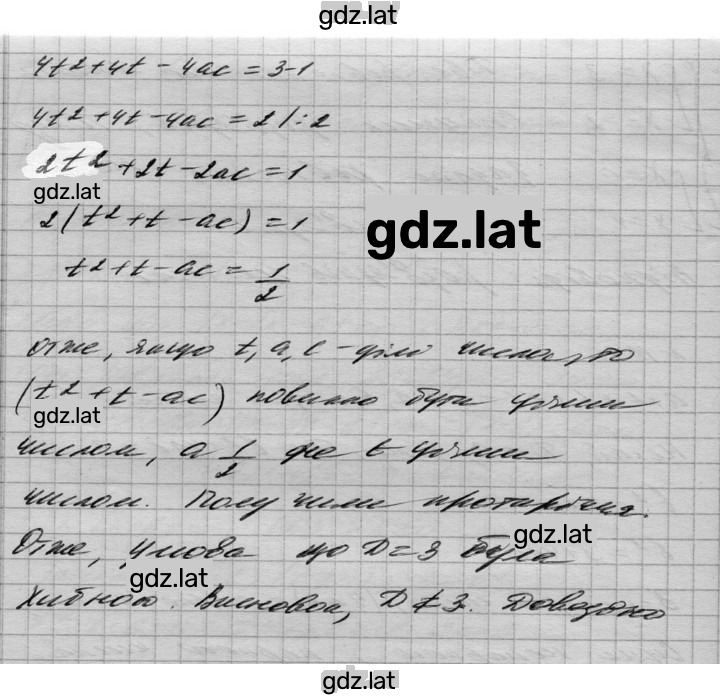 gdz.lat
4t²+4t-4ac=3-1
4t²+4t-4ac=2/:2
2t²+2t-2ac=1
gdz.lat
2(t²+t-ac)=1
gdz.lat
t²+t-ac=1/2
Отже, якщо t, a, c - цілі числа, то
(t²+t-ac) повинно бути цілим
gdz.lat
числом, а 1/2 не є цілим
числом. Получили протиріччя.
gdz.lat
Отже, умова що D=3 була
gdz.lat
хибною. Висновок, D≠3. Доведено
gdz.lat